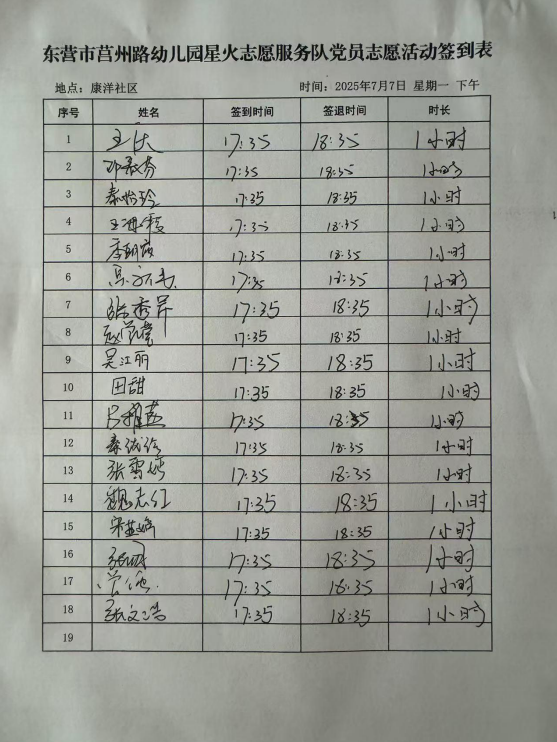 东营市莒州路幼儿园星火志愿服务队党员志愿活动签到表
地点：康洋社区 时间：2025年7月7日 星期一 下午
序号 姓名 签到时间 签退时间 时长
1 17:35 18:35 1小时
2 17:35 18:35 1小时
3 秦怡玲 17:35 18:35 1小时
4 17:35 18:35 1小时
5 17:35 18:35 1小时
6 17:35 18:35 1小时
7 张秀芹 17:35 18:35 1小时
8 17:35 18:35 1小时
9 吴江丽 17:35 18:35 1小时
10 田甜 17:35 18:35 1小时
11 17:35 18:35 1小时
12 17:35 18:35 1小时
13 17:35 18:35 1小时
14 魏志红 17:35 18:35 1小时
15 17:35 18:35 1小时
16 17:35 18:35 1小时
17 17:35 18:35 1小时
18 张文浩 17:35 18:35 1小时
19